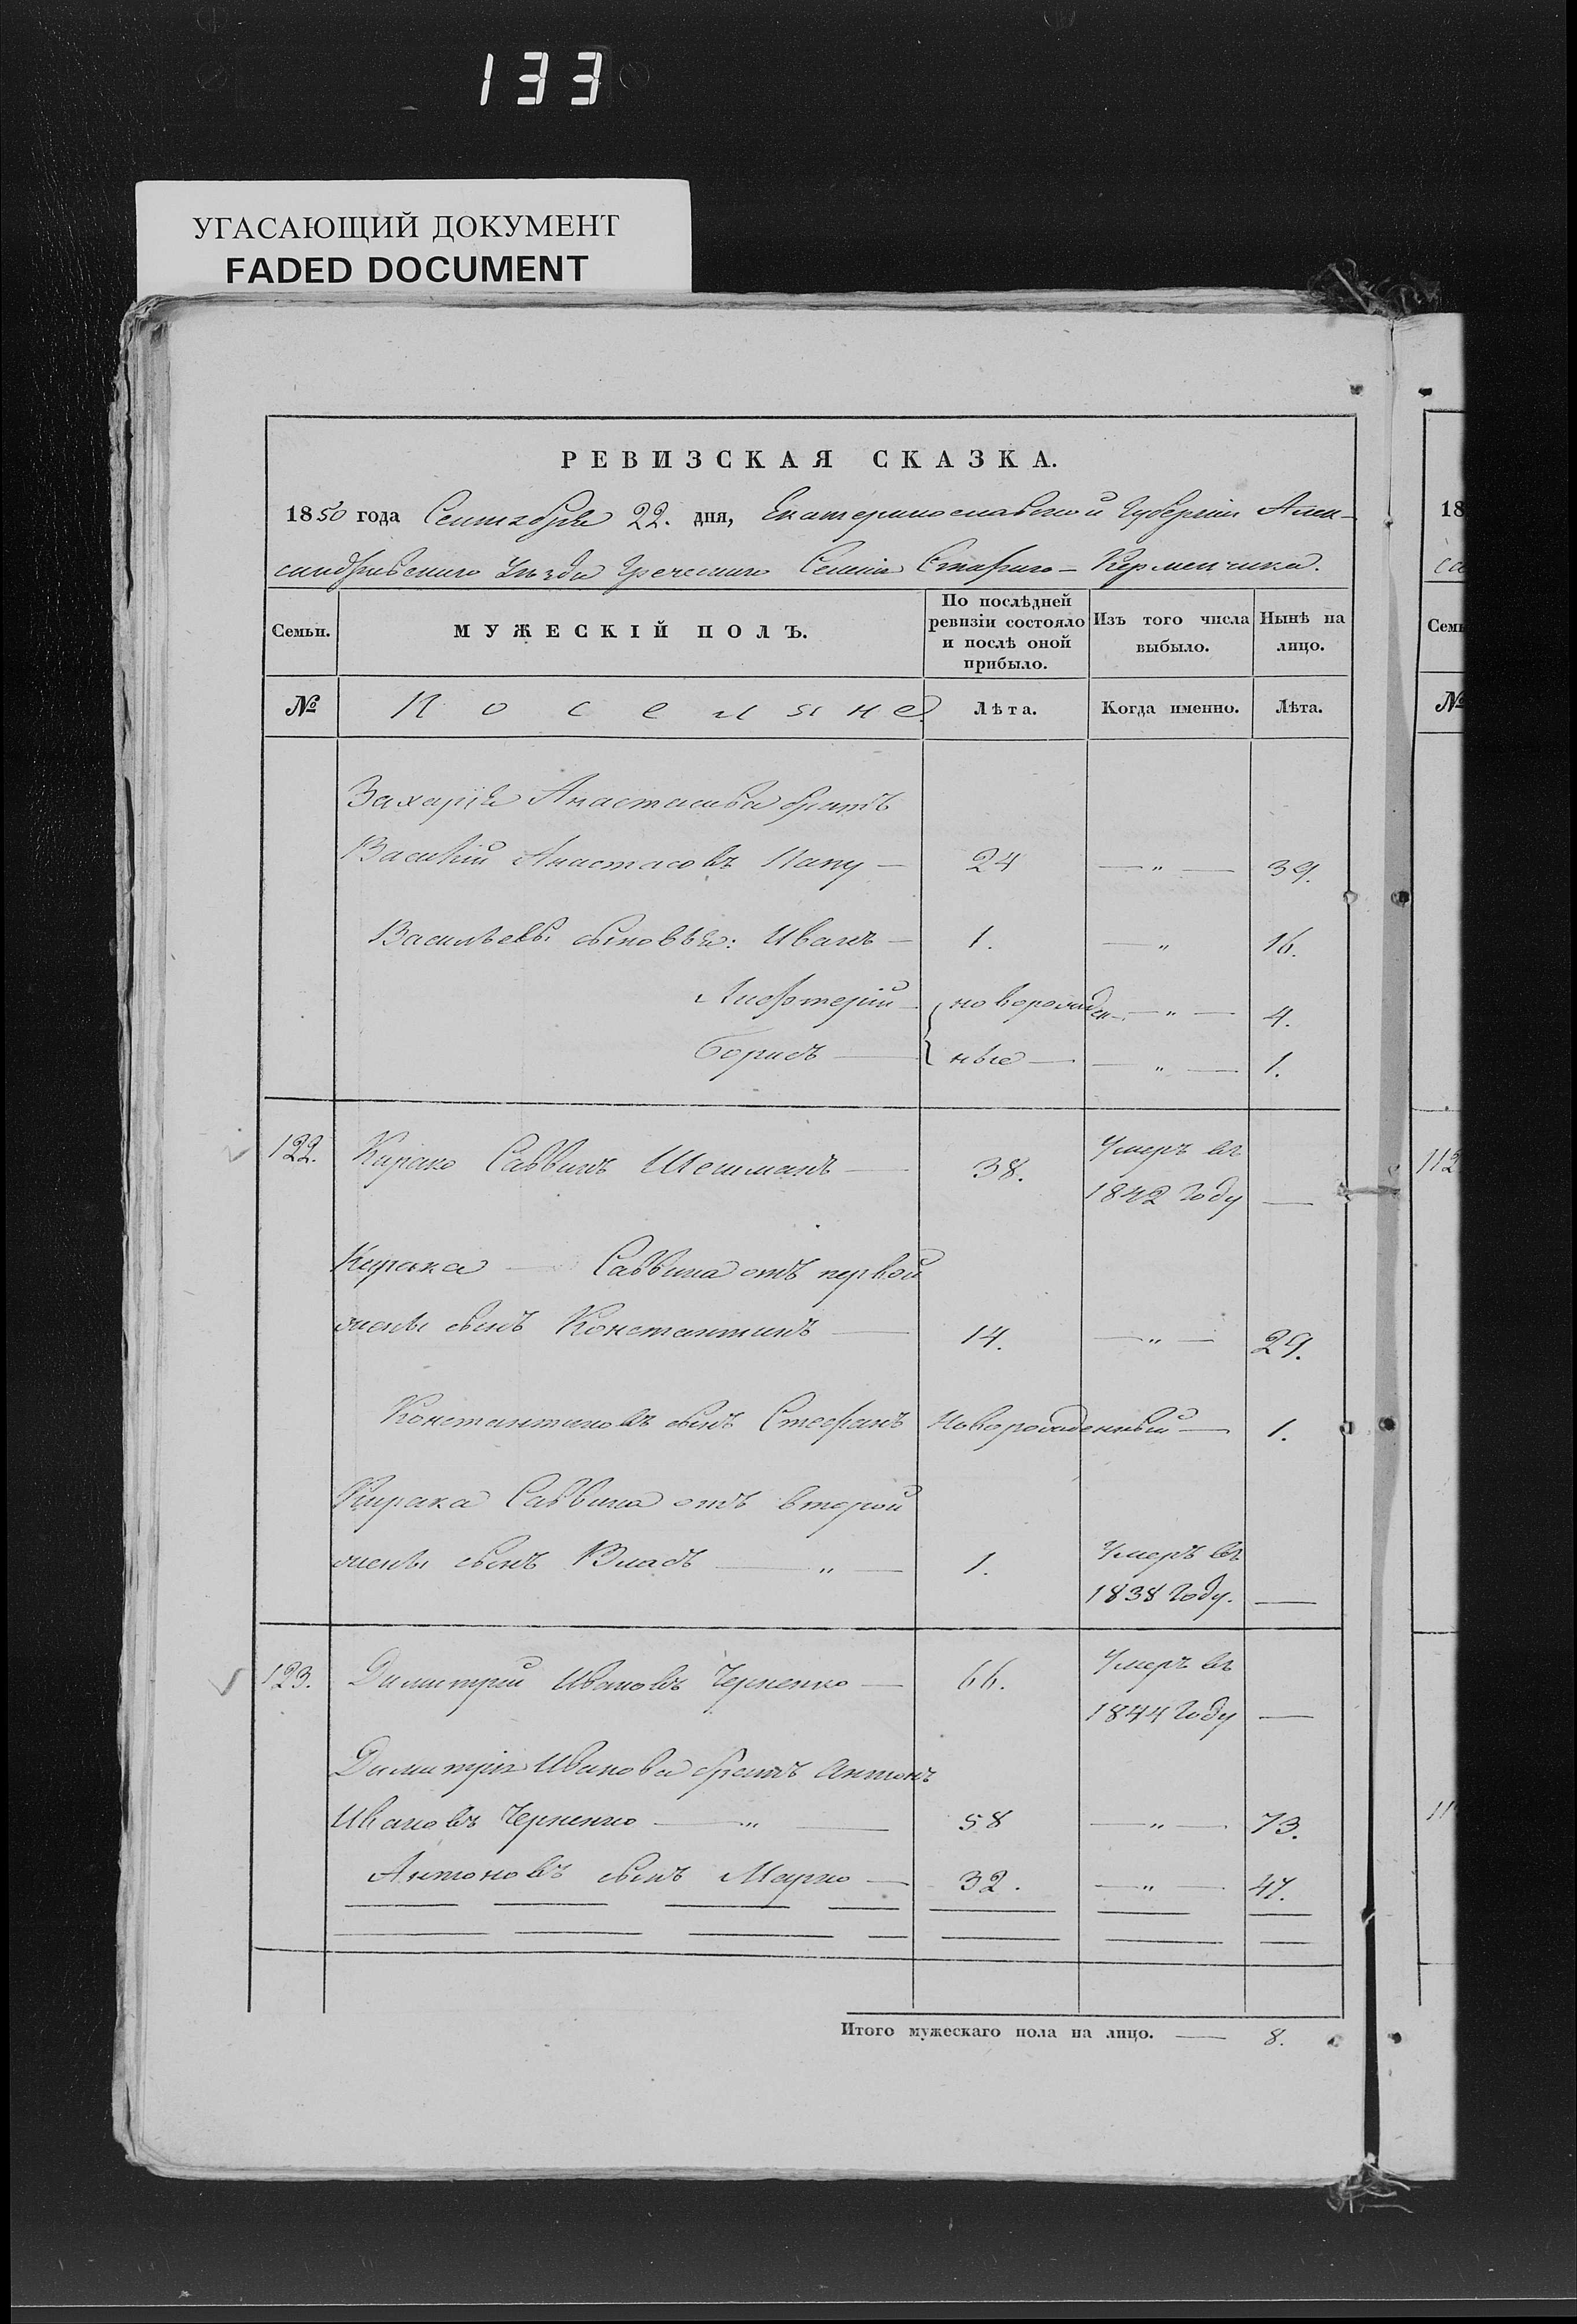 133
УГАСАЮЩИЙ ДОКУМЕНТ
FADED DOCUMENT
РЕВИЗСКАЯ СКАЗКА.
1850 года Сентября 22. дня, Екатеринославской Губерніи Алек-
сандровскаго Уѣзда Греческаго Селенія Стараго-Керменчика.
Семьи.
МУЖЕСКІЙ ПОЛЪ.
По послѣдней ревизіи состояло и послѣ оной прибыло.
Изъ того числа выбыло.
Нынѣ на лицо.
№ Поселяне Лѣта. Когда именно. Лѣта.
Захарія Анастасова братъ
Василій Анастасовъ Папу — 24 — " — 39.
Васильевы сыновья: Иванъ — 1. — " 16.
Лиофтерій — новорожден- — " — 4.
Борисъ — ные — — " — 1.
122. Кирако Саввинъ Шешманъ — 38. Умеръ въ
1842 году —
Кирака — Саввина отъ первой
жены сынъ Константинъ — 14. — " — 29.
Константиновъ сынъ Стефанъ Новорожденный — 1.
Кирака Саввина отъ второй
жены сынъ Власъ — " — 1. Умеръ въ
1838 году. —
123. Димитрій Ивановъ Черненко — 66. Умеръ въ
1844 году —
Димитрія Иванова братъ Антонъ
Ивановъ Черненко — " — 58 — " — 73.
Антоновъ сынъ Марко — 32. — " — 47.
Итого мужескаго пола на лицо. — 8.
18
са
Семь
№
112
11